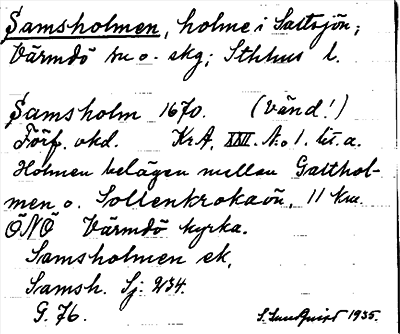 Samsholmen, holme i Saltsjön;
Värmdö sn o. skg; Sthlms l.
Samsholm 1670. (vänd!)
Förf. okd. KrA, XXVI. A: 1. lit. a.
Holmen belägen mellan Galthol-
men o. Sollenkrokaön, 11 km
ÖNÖ Värmdö kyrka.
Samsholmen ek,
Samsh. Sj:
G. 76. S. Sundquist 1935.